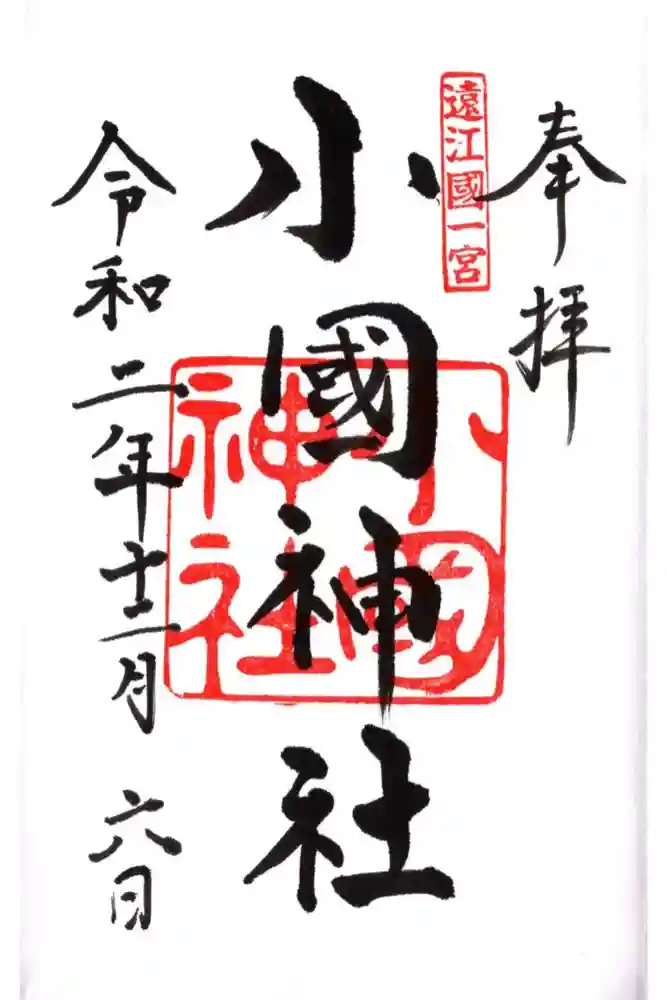 奉拝
遠江國一宮
小國神社
小國
神社
令和二年十二月六日